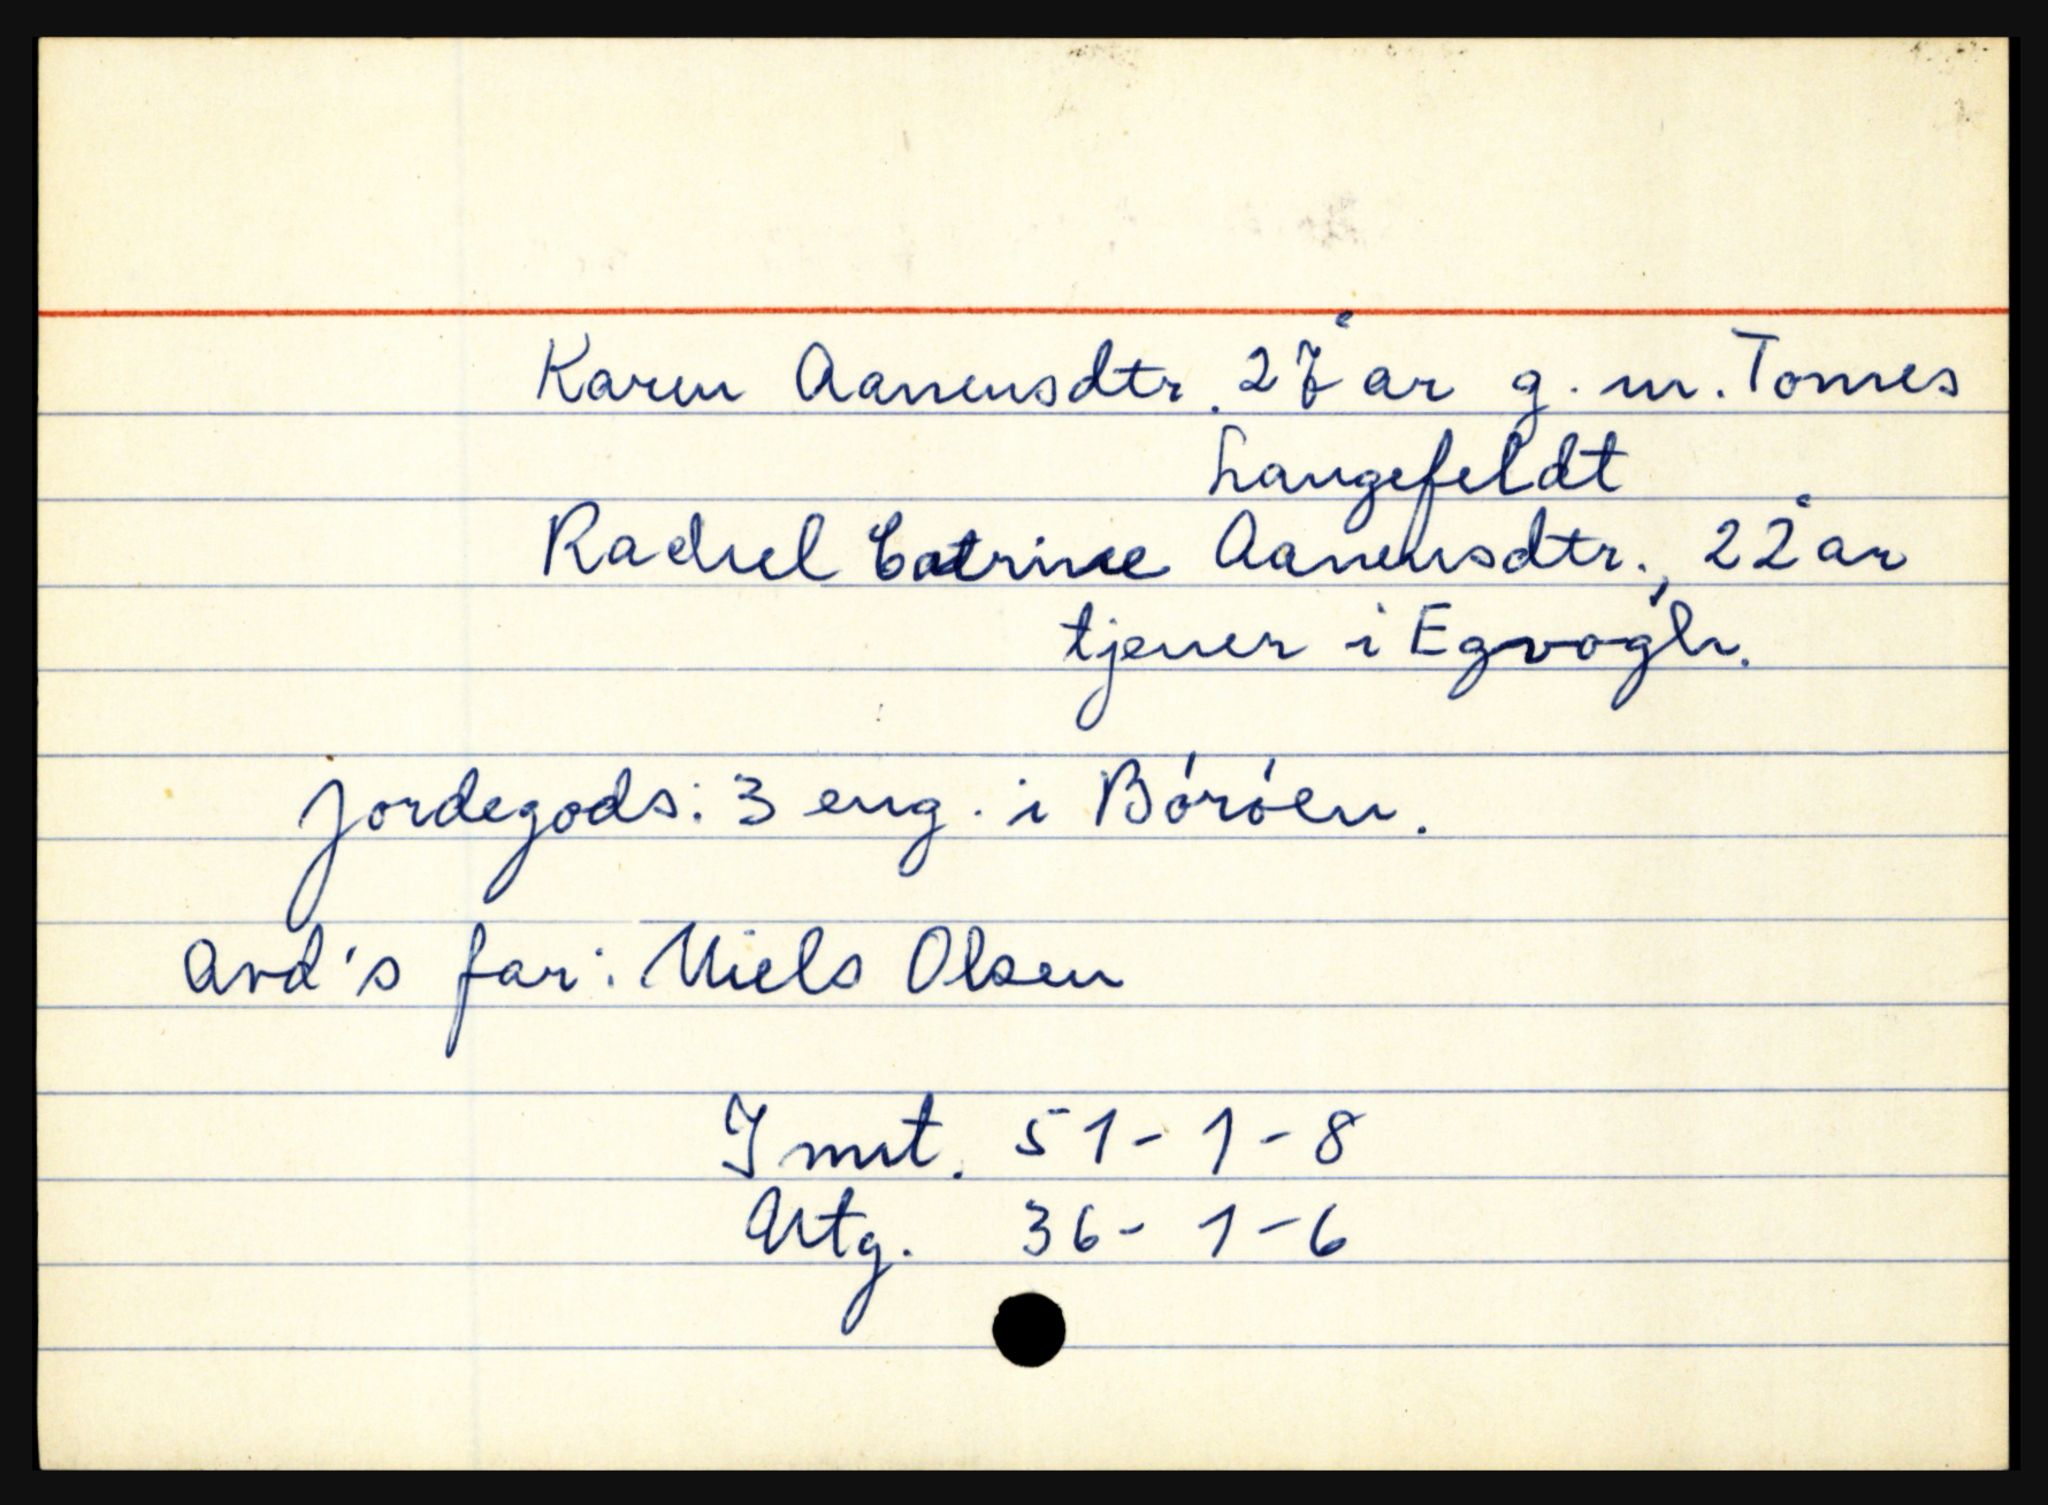 Karen Aanensdtr. 27 år g. m. Tomes
Langefeldt
Rachel Catrine Aanensdtr., 22 år
tjener i Egvogh.
Jordegods: 3 eng. i Bóróen.
Avd's far: Niels Olsen
Innt. 51-1-8
Utg. 36-1-6